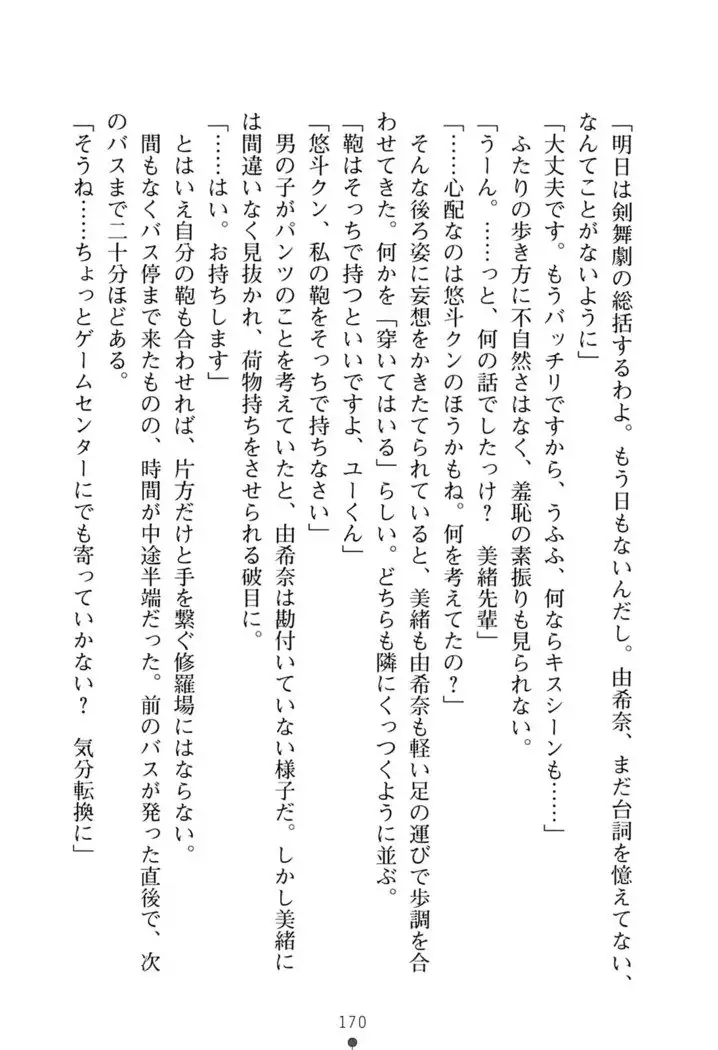 「明日は剣舞劇の総括するわよ。もう日もないんだし。由希奈、まだ台詞を憶えてない、
なんてことがないように」
「大丈夫です。もうバッチリですから、うふふ、何ならキスシーンも……」
ふたりの歩き方に不自然さはなく、羞恥の素振りも見られない。
「うーん。……っと、何の話でしたっけ？　美緒先輩」
「……心配なのは悠斗クンのほうかもね。何を考えてたの？」
そんな後ろ姿に妄想をかきたてられていると、美緒も由希奈も軽い足の運びで歩調を合
わせてきた。何かを「穿いてはいる」らしい。どちらも隣にくっつくように並ぶ。
「鞄はそっちで持つといいですよ、ユーくん」
「悠斗クン、私の鞄をそっちで持ちなさい」
男の子がパンツのことを考えていたと、由希奈は勘付いていない様子だ。しかし美緒に
は間違いなく見抜かれ、荷物持ちをさせられる破目に。
「……はい。お持ちします」
とはいえ自分の鞄も合わせれば、片方だけと手を繋ぐ修羅場にはならない。
間もなくバス停まで来たものの、時間が中途半端だった。前のバスが発った直後で、次
のバスまで二十分ほどある。
「そうね……ちょっとゲームセンターにでも寄っていかない？　気分転換に」
170